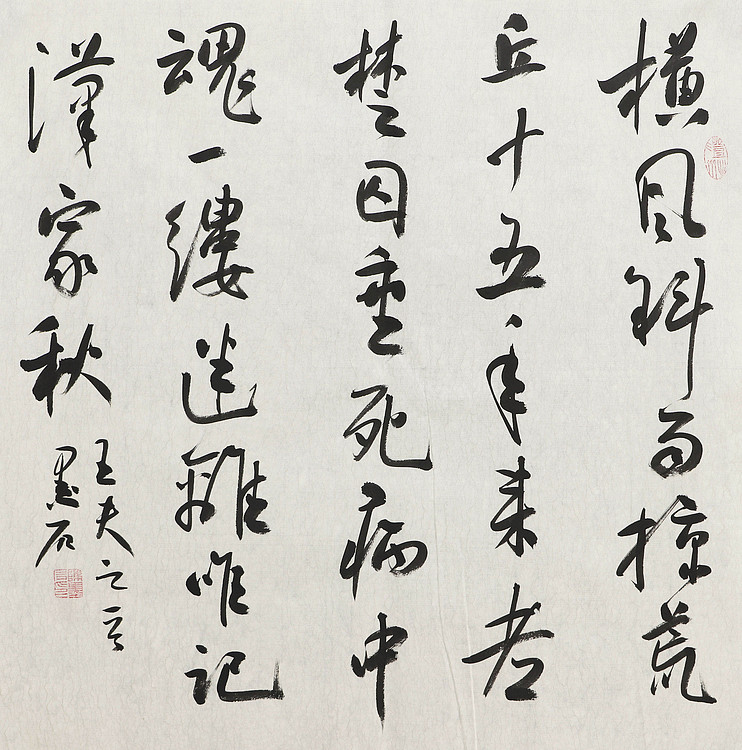 横风斜雨掠荒
丘十五年来老
楚囚垂死病中
魂一缕迷離唯记
漢家秋
王夫之言
墨石